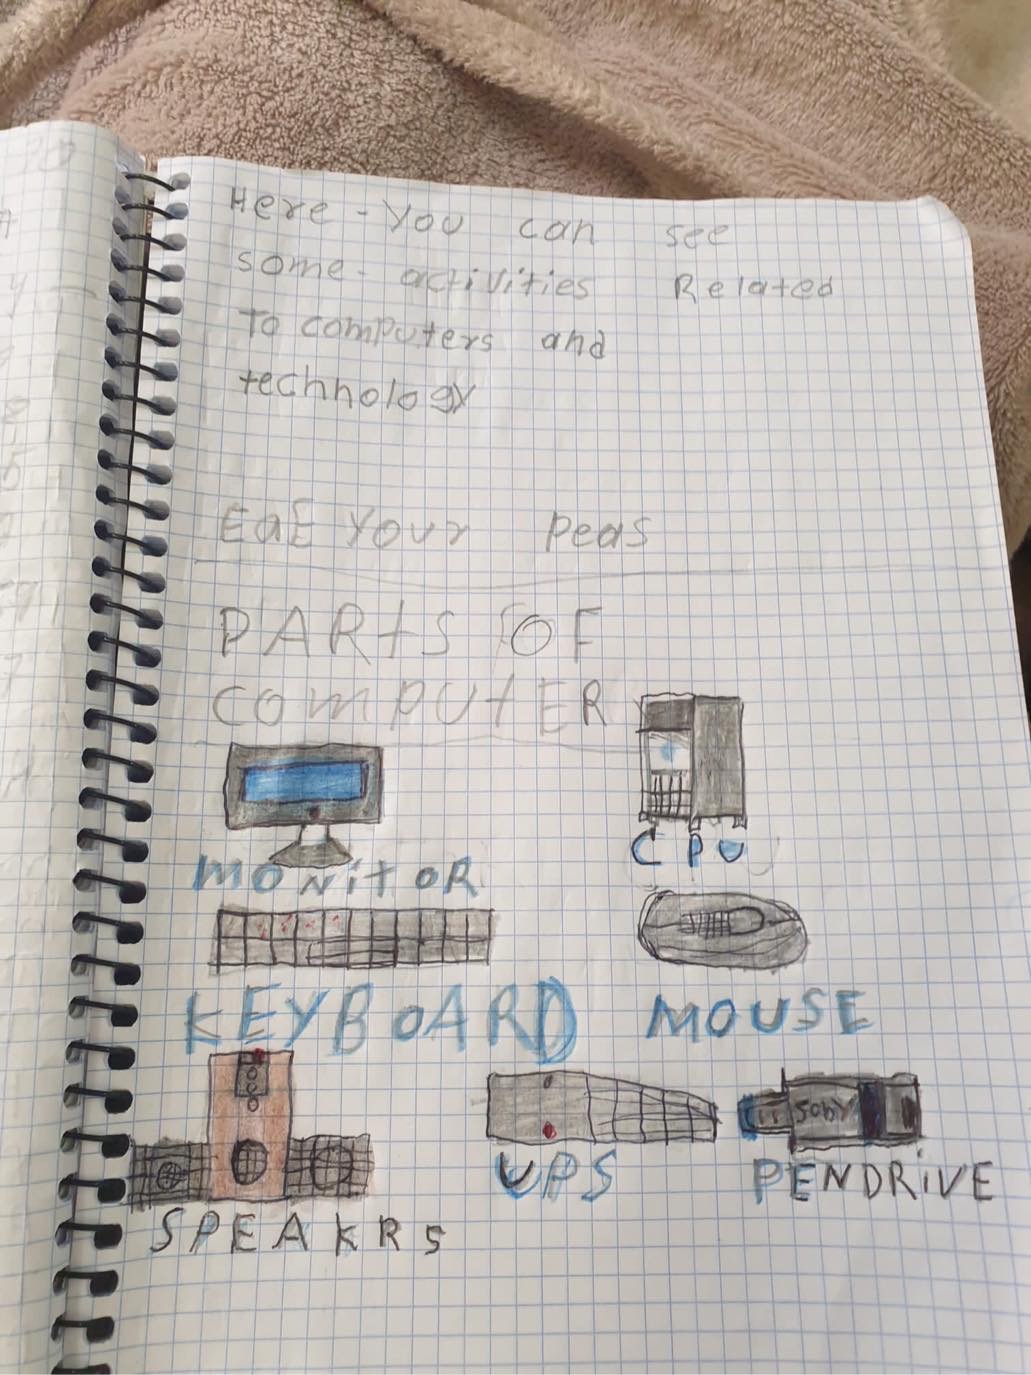 Here - You can see
some activities Related
To computers and
technology
EaE Your peas
PARtS OF
COmPUtER
CPU
MONitOR
KEYBOARD MOUSE
SONY
UPS
PENDRiVE
SPEAKRS